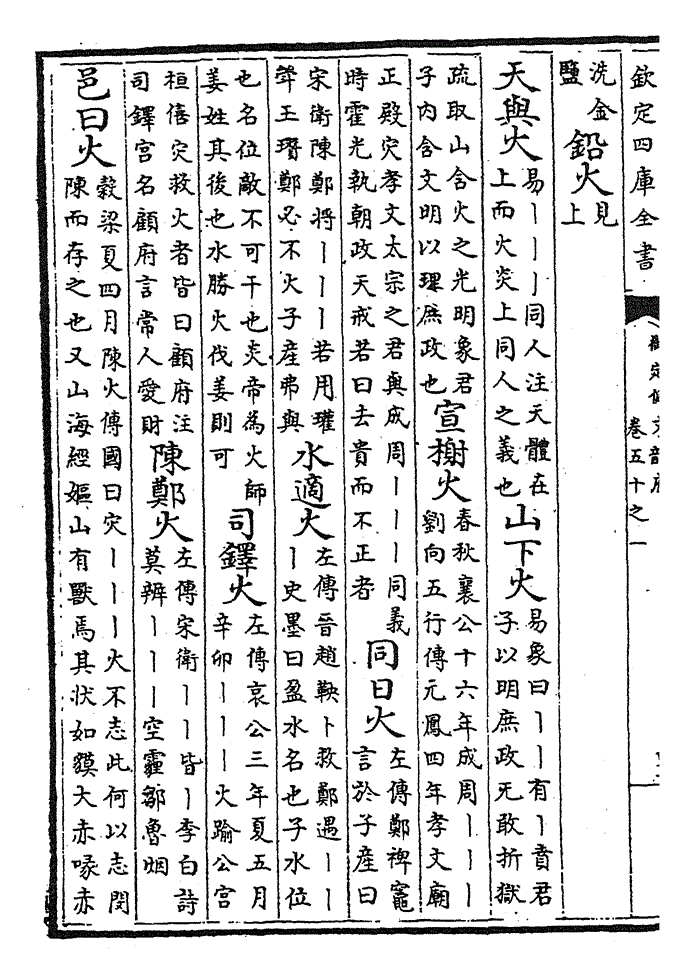 欽定四庫全書
卷五十之一
洗金
鹽
鉛火
見
上
天與火
易丨丨丨同人注天體在
上而火炎上同人之義也
山下火
易象曰丨丨有丨賁君
子以明庶政无敢折獄
疏取山含火之光明象君
子内含文明以理庶政也
宣榭火
春秋襄公十六年成周丨丨丨
劉向五行傳元鳳四年孝文廟
正殿灾孝文太宗之君與成周丨丨丨同義
時霍光執朝政天戒若曰去貴而不正者
同日火
左傳鄭裨竈
言於子產曰
宋衛陳鄭將丨丨丨若用瓘
斝王瓚鄭必不火子產弗與
水適火
左傳晉趙鞅卜救鄭遇丨丨
丨史墨曰盈水名也子水位
也名位敵不可干也炎帝為火師
姜姓其後也水勝火伐姜則可
司鐸火
左傳哀公三年夏五月
辛卯丨丨丨火踰公宮
桓僖灾救火者皆曰顧府注
司鐸宮名顧府言常人愛財
陳鄭火
左傳宋衛丨丨皆丨李白詩
莫辨丨丨丨空霾鄒魯烟
邑曰火
榖梁夏四月陳火傳國曰灾丨丨丨火不志此何以志閔
陳而存之也又山海經嫗山有獸焉其狀如貘大赤喙赤